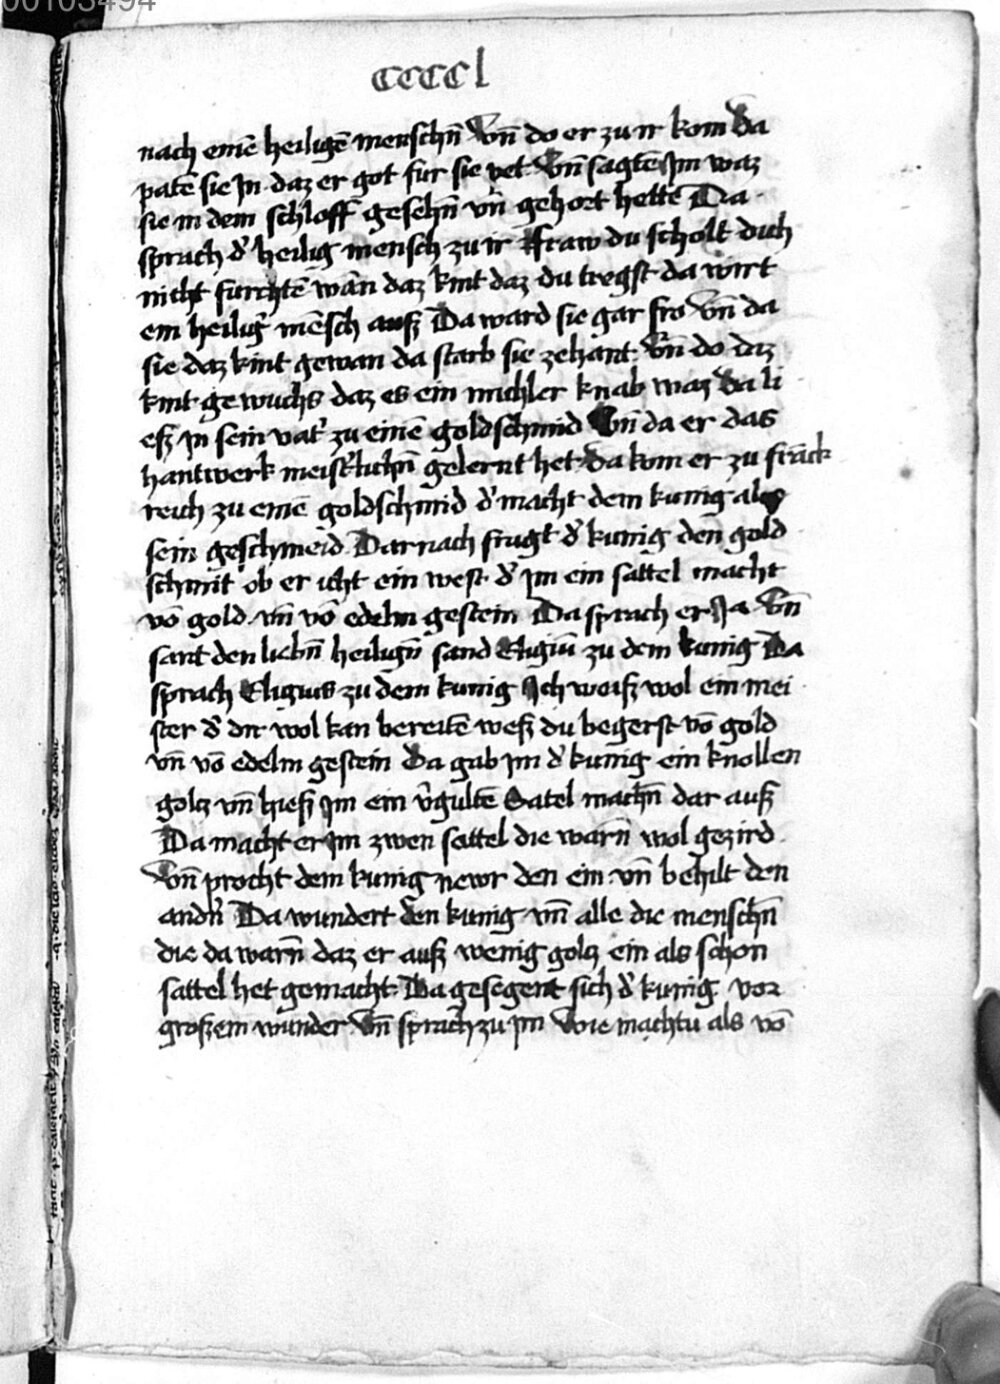 00103494
ccccl
nach einē heiligē menschn̄ Vn̄ do er zu ir kom Da
patē sie jn daz er got fur sie pet Vn̄ sagtē jm waz
sie in dem schloff gesehn̄ vn̄ gehort hette Da
sprach d' heilig mensch zu ir Fraw du scholt dich
nicht furchtē wan̄ daz kint daz du tregst da wirt
ein heilig' mēsch auß Da ward sie gar fro Vn̄ da
sie daz kint gewan da starb sie zehant Vn̄ do daz
kint gewuchs daz es ein michler knab waz Da li
eß jn sein vat' zu einē goldschmid Vn̄ da er das
hantwerk meist'lichn̄ gelernt het da kom er zu frāck
reich zu einē goldschmid d' macht dem kunig als
sein geschmeid Darnach fragt d' kunig den gold
schmit ob er icht ein west d' jm ein sattel macht
vō gold vn̄ vō edelm gestein Da sprach er Ja Vn̄
sant den liebn̄ heilign̄ sand Eligiū zu dem kunig Da
sprach Eligius zu dem kunig Ich weiß wol ein mei
ster d' dir wol kan bereitē weß du begerst vō gold
vn̄ vō edelm gestein Da gab jm d' kunig ein knollen
goltz vn̄ hieß jm ein v'gultē Satel machn̄ dar auß
Da macht er jm zwen sattel die warn̄ wol gezird
Vn̄ procht dem kunig newr den ein vn̄ behilt den
andn̄ Da wundert den kunig vn̄ alle die menschn̄
die da warn̄ daz er auß wenig goltz ein als schon
sattel het gemacht Da gesegent sich d' kunig vor
großem wunder Vn̄ sprach zu jm Wie machtu als vō